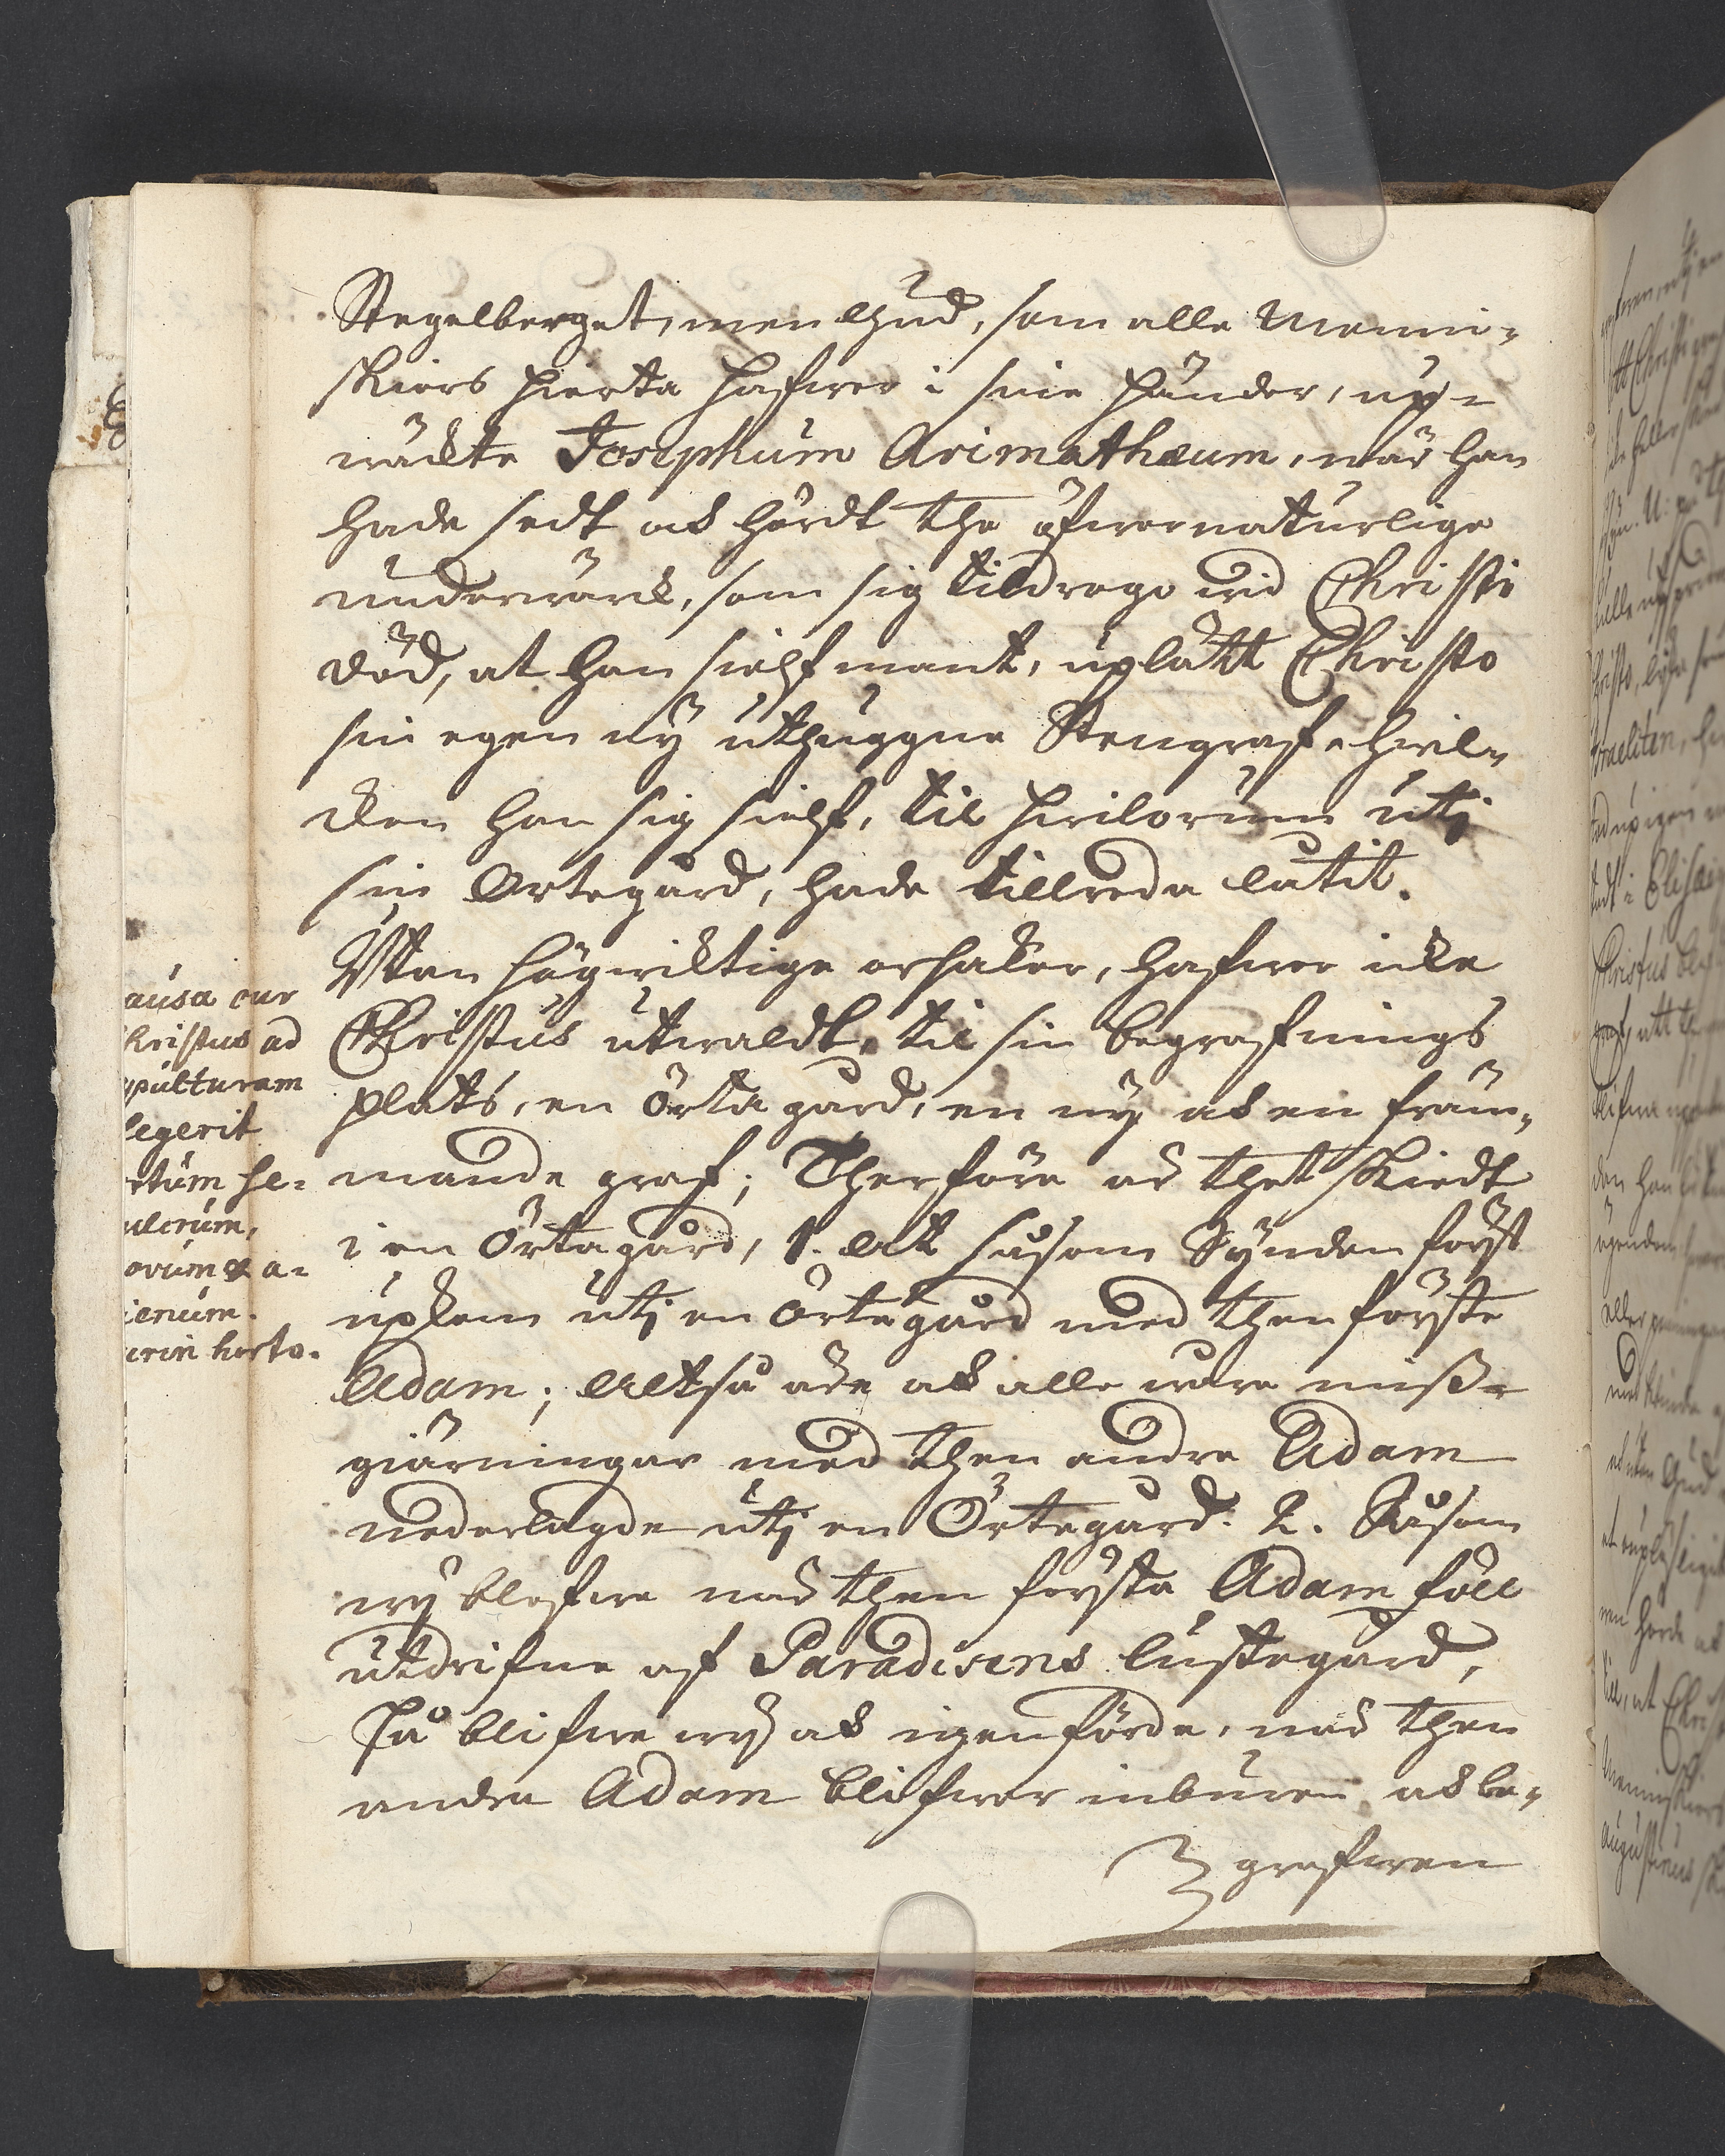 Stegelberget, men Gud, som alle Menni-
skiors hierta hafwer i sine händer, up-
wäckte Josephum Arimathæum, når han
hade sedt ock hördt the öfwernaturlige
underwärck, som sig tildrogo wid Christi
död, at han sielfmant, uplätt Christo
sin egen ny uthuggne Stengraf hwil-
cken han sig sielf, til hwilorum utj
sin Örtegård, hade tillreda låtit.
Utan högwichtige orsaker, hafwer icke
Christus utwaldt, til sin begrafnings
plats, en Örtagård, en ny ock en främ-
mande graf; Therföre är thet skiedt
i en Örtagård, 1. att såsom Synden först
upkom utj en Örtegård med then förste
Adam; altså äre ock alle wåre miss-
giärningar med then andre Adam
nederlagde utj en Örtegård. 2. Såsom
wij blefwe når then första Adam föll
utdrifne af Paradisens lustegård,
Så blifwe wij ock igenförde, når then
andra Adam blifwer inburen ock be-
grafwen
ausa cur
hristus ad
pulturam
legerit
rtum se-
ulcrum,
ovum & a-
ienum.
cur in horto.